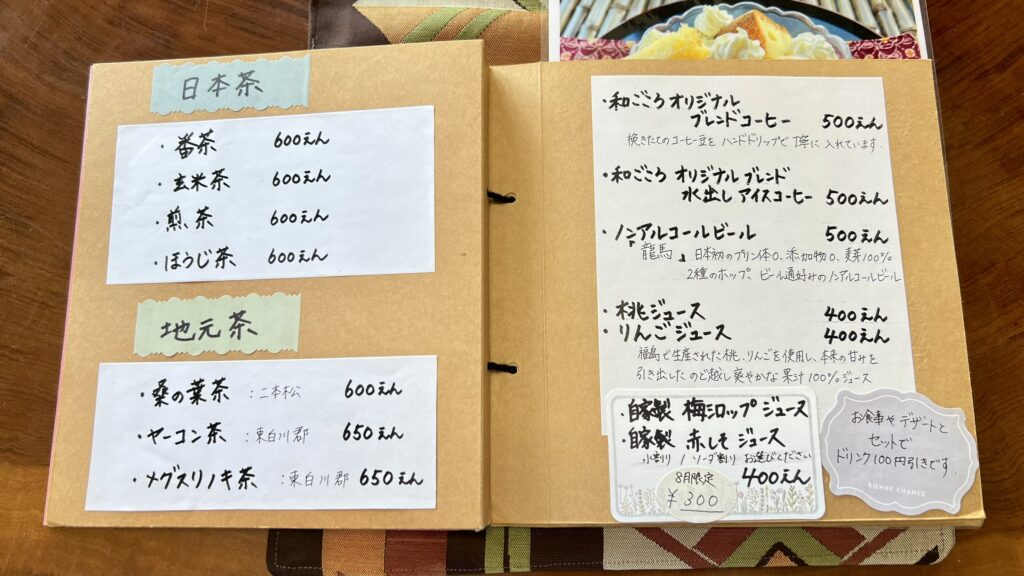 日本茶
・番茶 600えん
・玄米茶 600えん
・煎茶 600えん
・ほうじ茶 600えん
地元茶
・桑の葉茶 :二本松 600えん
・ヤーコン茶 :東白川郡 650えん
・メグスリノキ茶 :東白川郡 650えん
・和ごころ オリジナル
ブレンドコーヒー 500えん
挽きたてのコーヒー豆を ハンドドリップで 丁寧に 入れています.
・和ごころ オリジナル ブレンド
水出し アイスコーヒー 500えん
・ノンアルコールビール 500えん
「龍馬」日本初のプリン体0、添加物0、麦芽100%
2種のホップ、ビール通好みのノンアルコールビール
・桃ジュース 400えん
・りんごジュース 400えん
福島で生産された桃、りんごを使用し、本来の甘みを
引き出したのど越し爽やかな果汁100%ジュース
・自家製 梅シロップ ジュース
・自家製 赤しそ ジュース
水割り / ソーダ割り お選びください
400えん
8月限定
¥300
お食事や デザートと
セットで
ドリンク100円引きです.
BONNE CHANCE